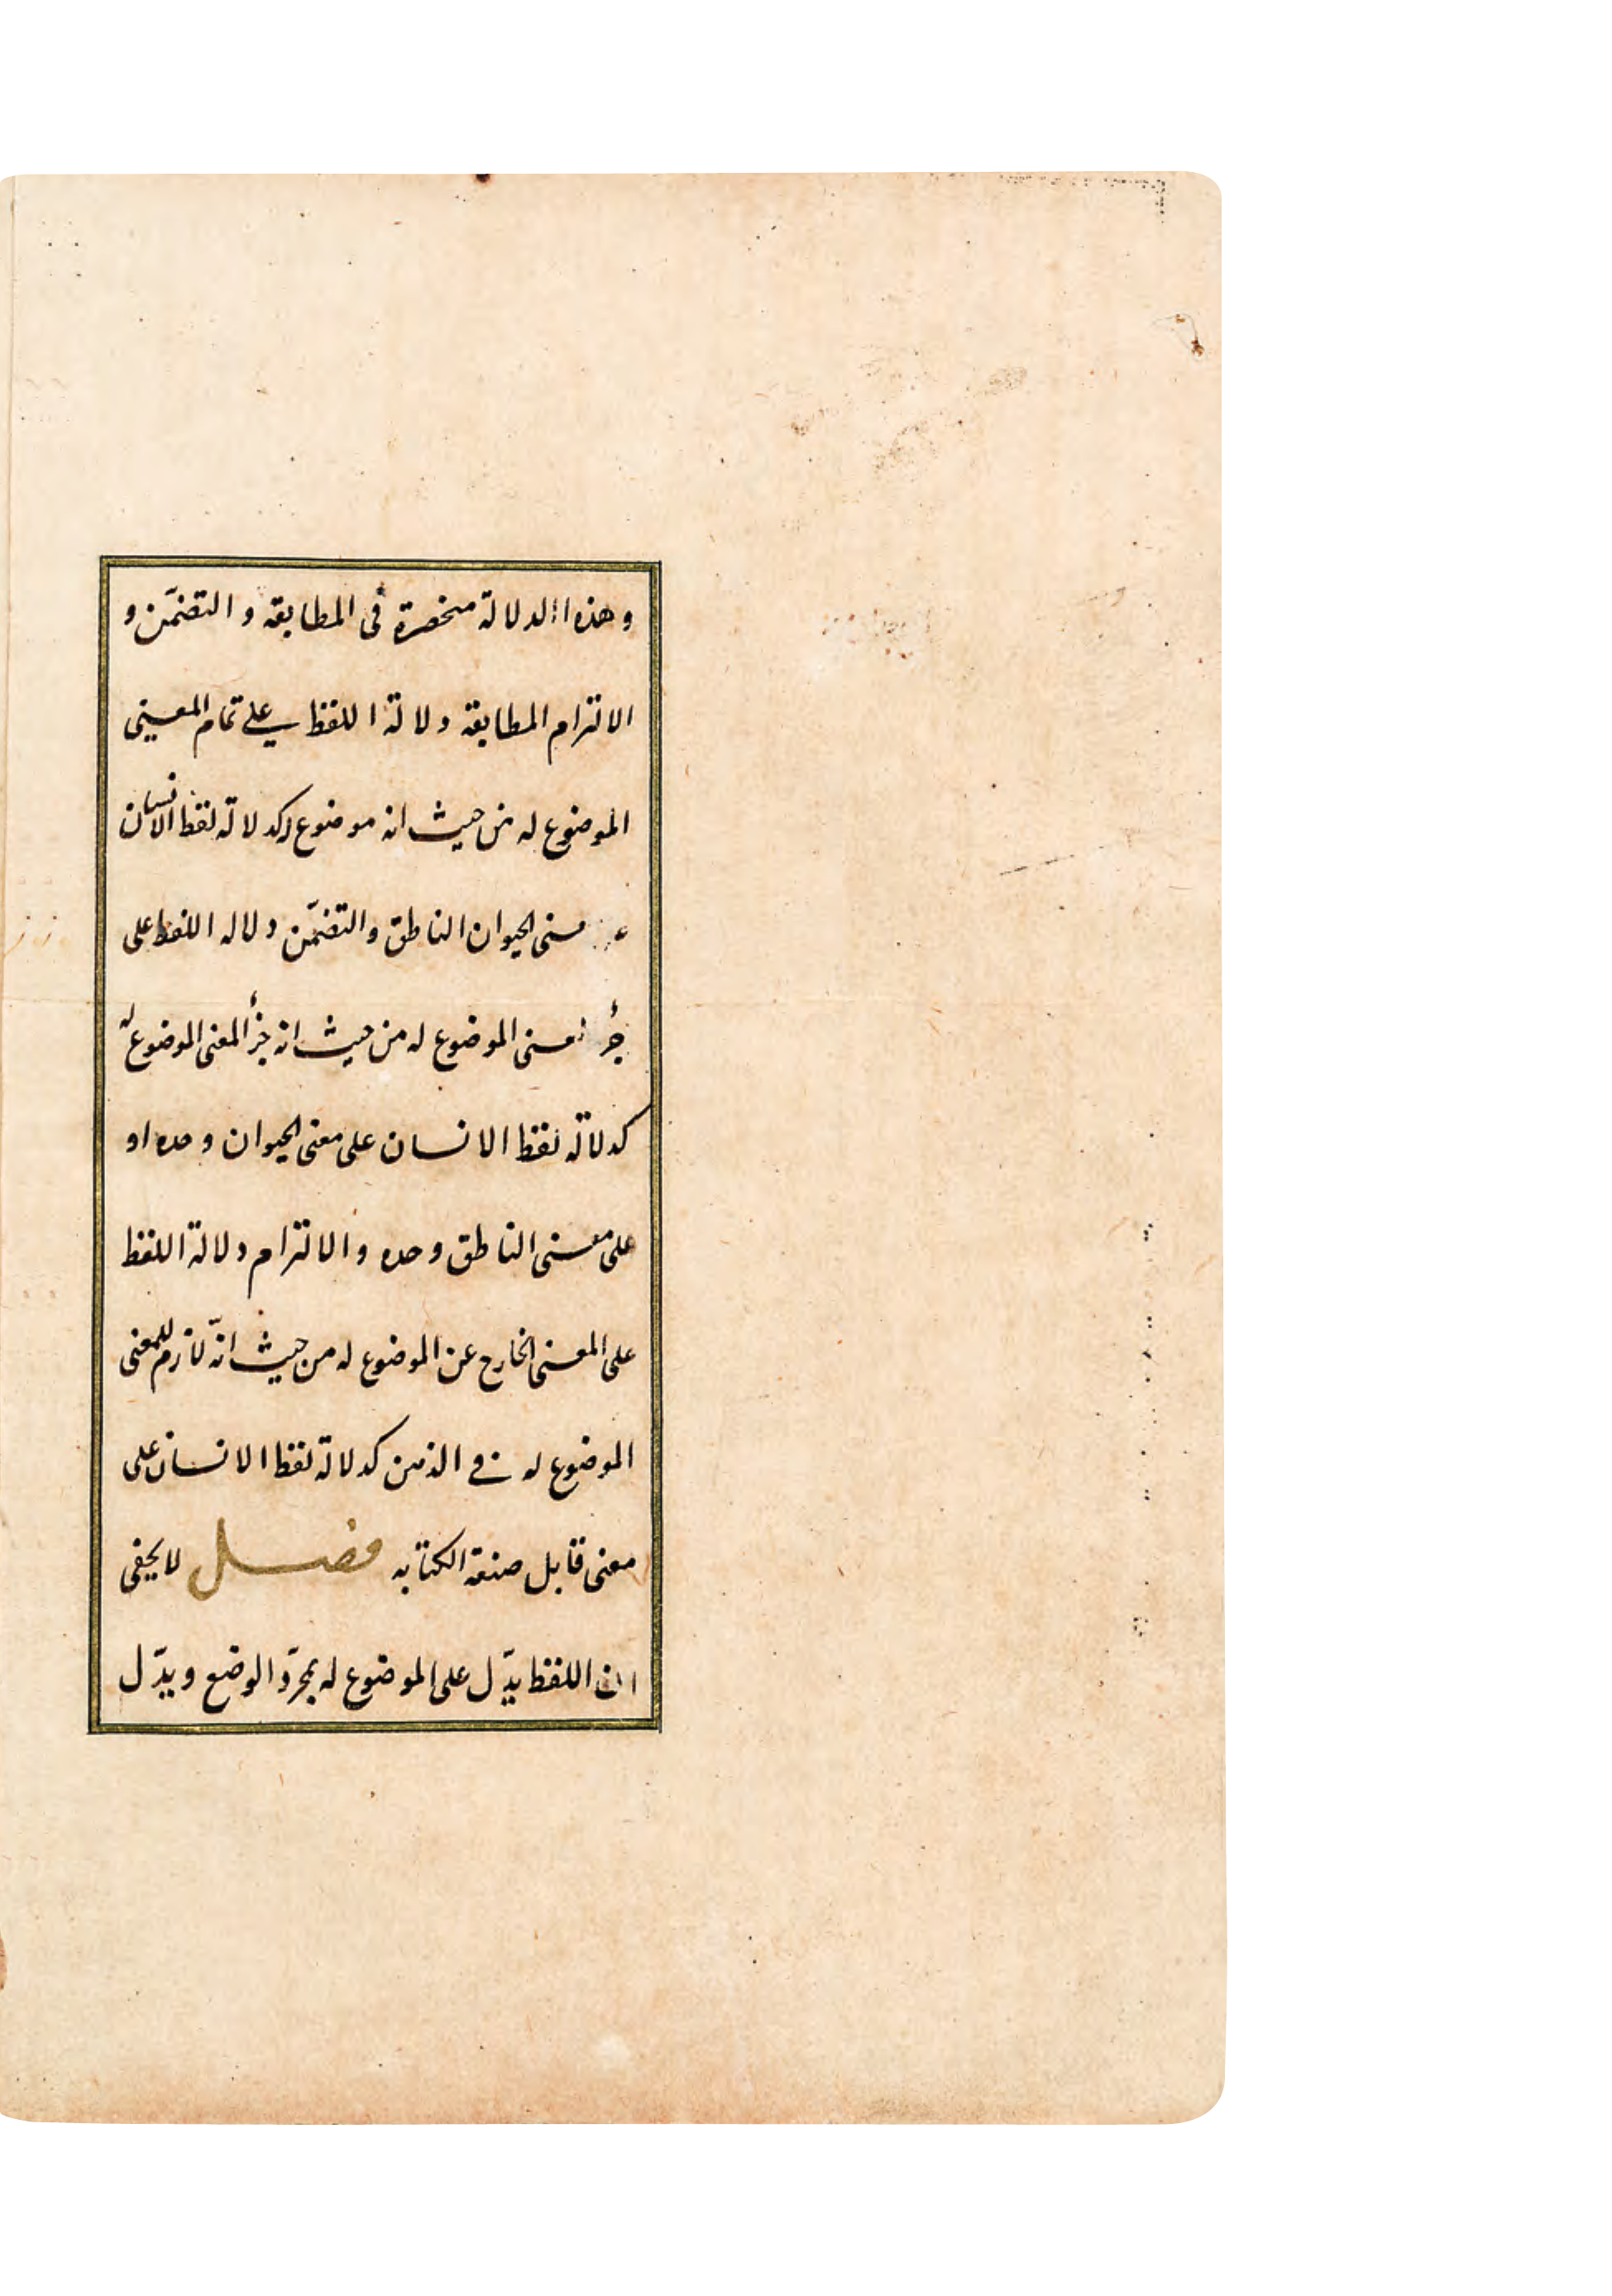 و هذه الدلالة منحصرة فى المطابقه و التضمّن و
الالتزام المطابقة دلالة اللفظ على تمام المعنى
الموضوع له من حيث انه موضوع له كدلالة لفظ الانسان
معنى الحيوان الناطق والتضمّن دلاله اللفظ على
جزء المعنى الموضوع له من حيث انه جزء المعنى الموضوع له
كدلالة لفظ الانسان على معنى الحيوان وحده او
على معنى الناطق وحده والالتزام دلالة اللفظ
على المعنى الخارج عن الموضوع له من حيث انّه لازم للمعنى
الموضوع له فى الذهن كدلالة لفظ الانسان على
معنى قابل صنعة الكتابه فصل لا يخفى
ان اللفظ يدّل على الموضوع له بمجرّد الوضع ويدّل